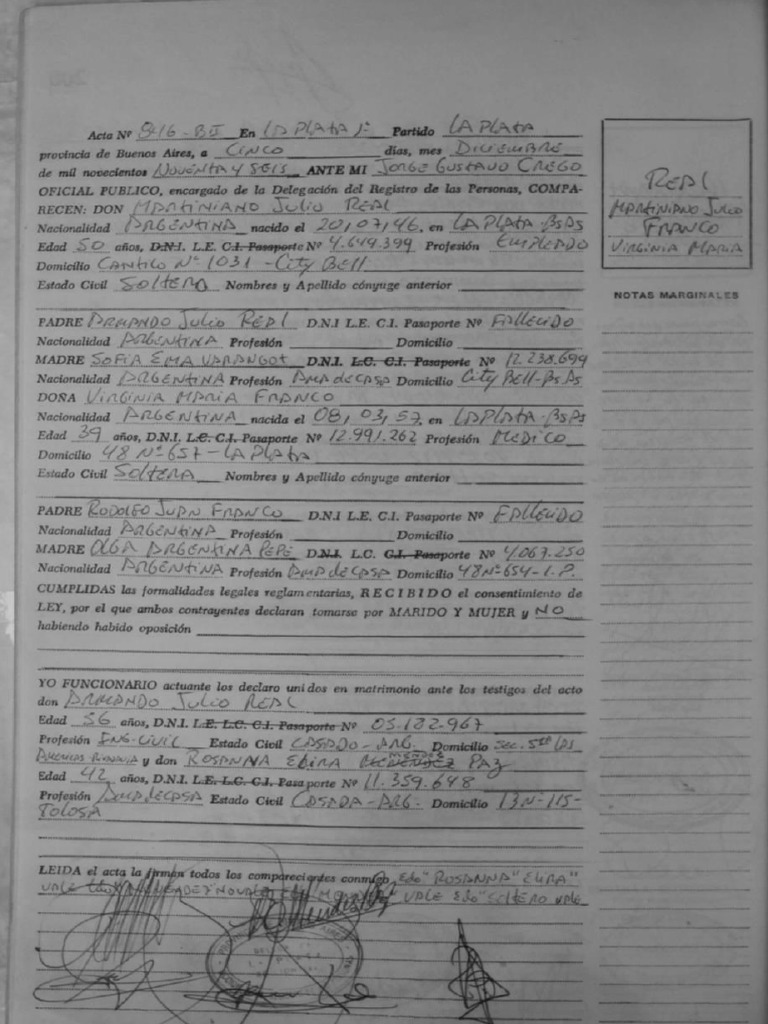 Acta Nº 846-BII En LA PLATA 1ª Partido LA PLATA
provincia de Buenos Aires, a CINCO días, mes DICIEMBRE
de mil novecientos NOVENTA Y SEIS ANTE MI JORGE GUSTAVO CREGO
OFICIAL PUBLICO, encargado de la Delegación del Registro de las Personas, COMPA-
RECEN: DON MARTINIANO JULIO REAL
Nacionalidad ARGENTINA nacido el 20,07,46, en LA PLATA-BsAs
Edad 50 años, D.N.I. L.E. C.I. Pasaporte Nº 4.649.399 Profesión EMPLEADO
Domicilio CANTILO Nº 1031 - City Bell
Estado Civil SOLTERO Nombres y Apellido cónyuge anterior
PADRE ARMANDO JULIO REAL D.N.I L.E. C.I. Pasaporte Nº FALLECIDO
Nacionalidad ARGENTINA Profesión Domicilio
MADRE SOFIA EMA VARANGOT D.N.I. L.C. C.I. Pasaporte Nº 12.238.699
Nacionalidad ARGENTINA Profesión AMA de CASA Domicilio City Bell-BsAs
DOÑA VIRGINIA MARIA FRANCO
Nacionalidad ARGENTINA nacida el 08,03,57, en LA PLATA-BsAs
Edad 39 años, D.N.I. L.C. C.I. Pasaporte Nº 12.991.262 Profesión MEDICO
Domicilio 48 Nº 657 - LA PLATA
Estado Civil SOLTERA Nombres y Apellido cónyuge anterior
PADRE RODOLFO JUAN FRANCO D.N.I L.E. C.I. Pasaporte Nº FALLECIDO
Nacionalidad ARGENTINA Profesión Domicilio
MADRE OLGA ARGENTINA PEPE D.N.I. L.C. C.I. Pasaporte Nº 4.067.250
Nacionalidad ARGENTINA Profesión AMA de CASA Domicilio 48 Nº 654-L.P.
CUMPLIDAS las formalidades legales reglamentarias, RECIBIDO el consentimiento de
LEY, por el que ambos contrayentes declaran tomarse por MARIDO Y MUJER y NO
habiendo habido oposición
YO FUNCIONARIO actuante los declaro unidos en matrimonio ante los testigos del acto
don ARMANDO JULIO REAL
Edad 56 años, D.N.I. L.E. L.C. C.I. Pasaporte Nº 05.182.967
Profesión ING. CIVIL Estado Civil CASADO-ARG. Domicilio
y don ROSANNA ELIRA MENDEZ PAZ
Edad 42 años, D.N.I. L.E. L.C. C.I. Pasaporte Nº 11.359.648
Profesión AMA de CASA Estado Civil CASADA-ARG. Domicilio 13 Nº 115-
TOLOSA
LEIDA el acta la firman todos los comparecientes conmigo Edo "ROSANNA" "ELIRA"
VALE VALE Edo "SOLTERO VALE
REAL
MARTINIANO JULIO
FRANCO
VIRGINIA MARIA
NOTAS MARGINALES